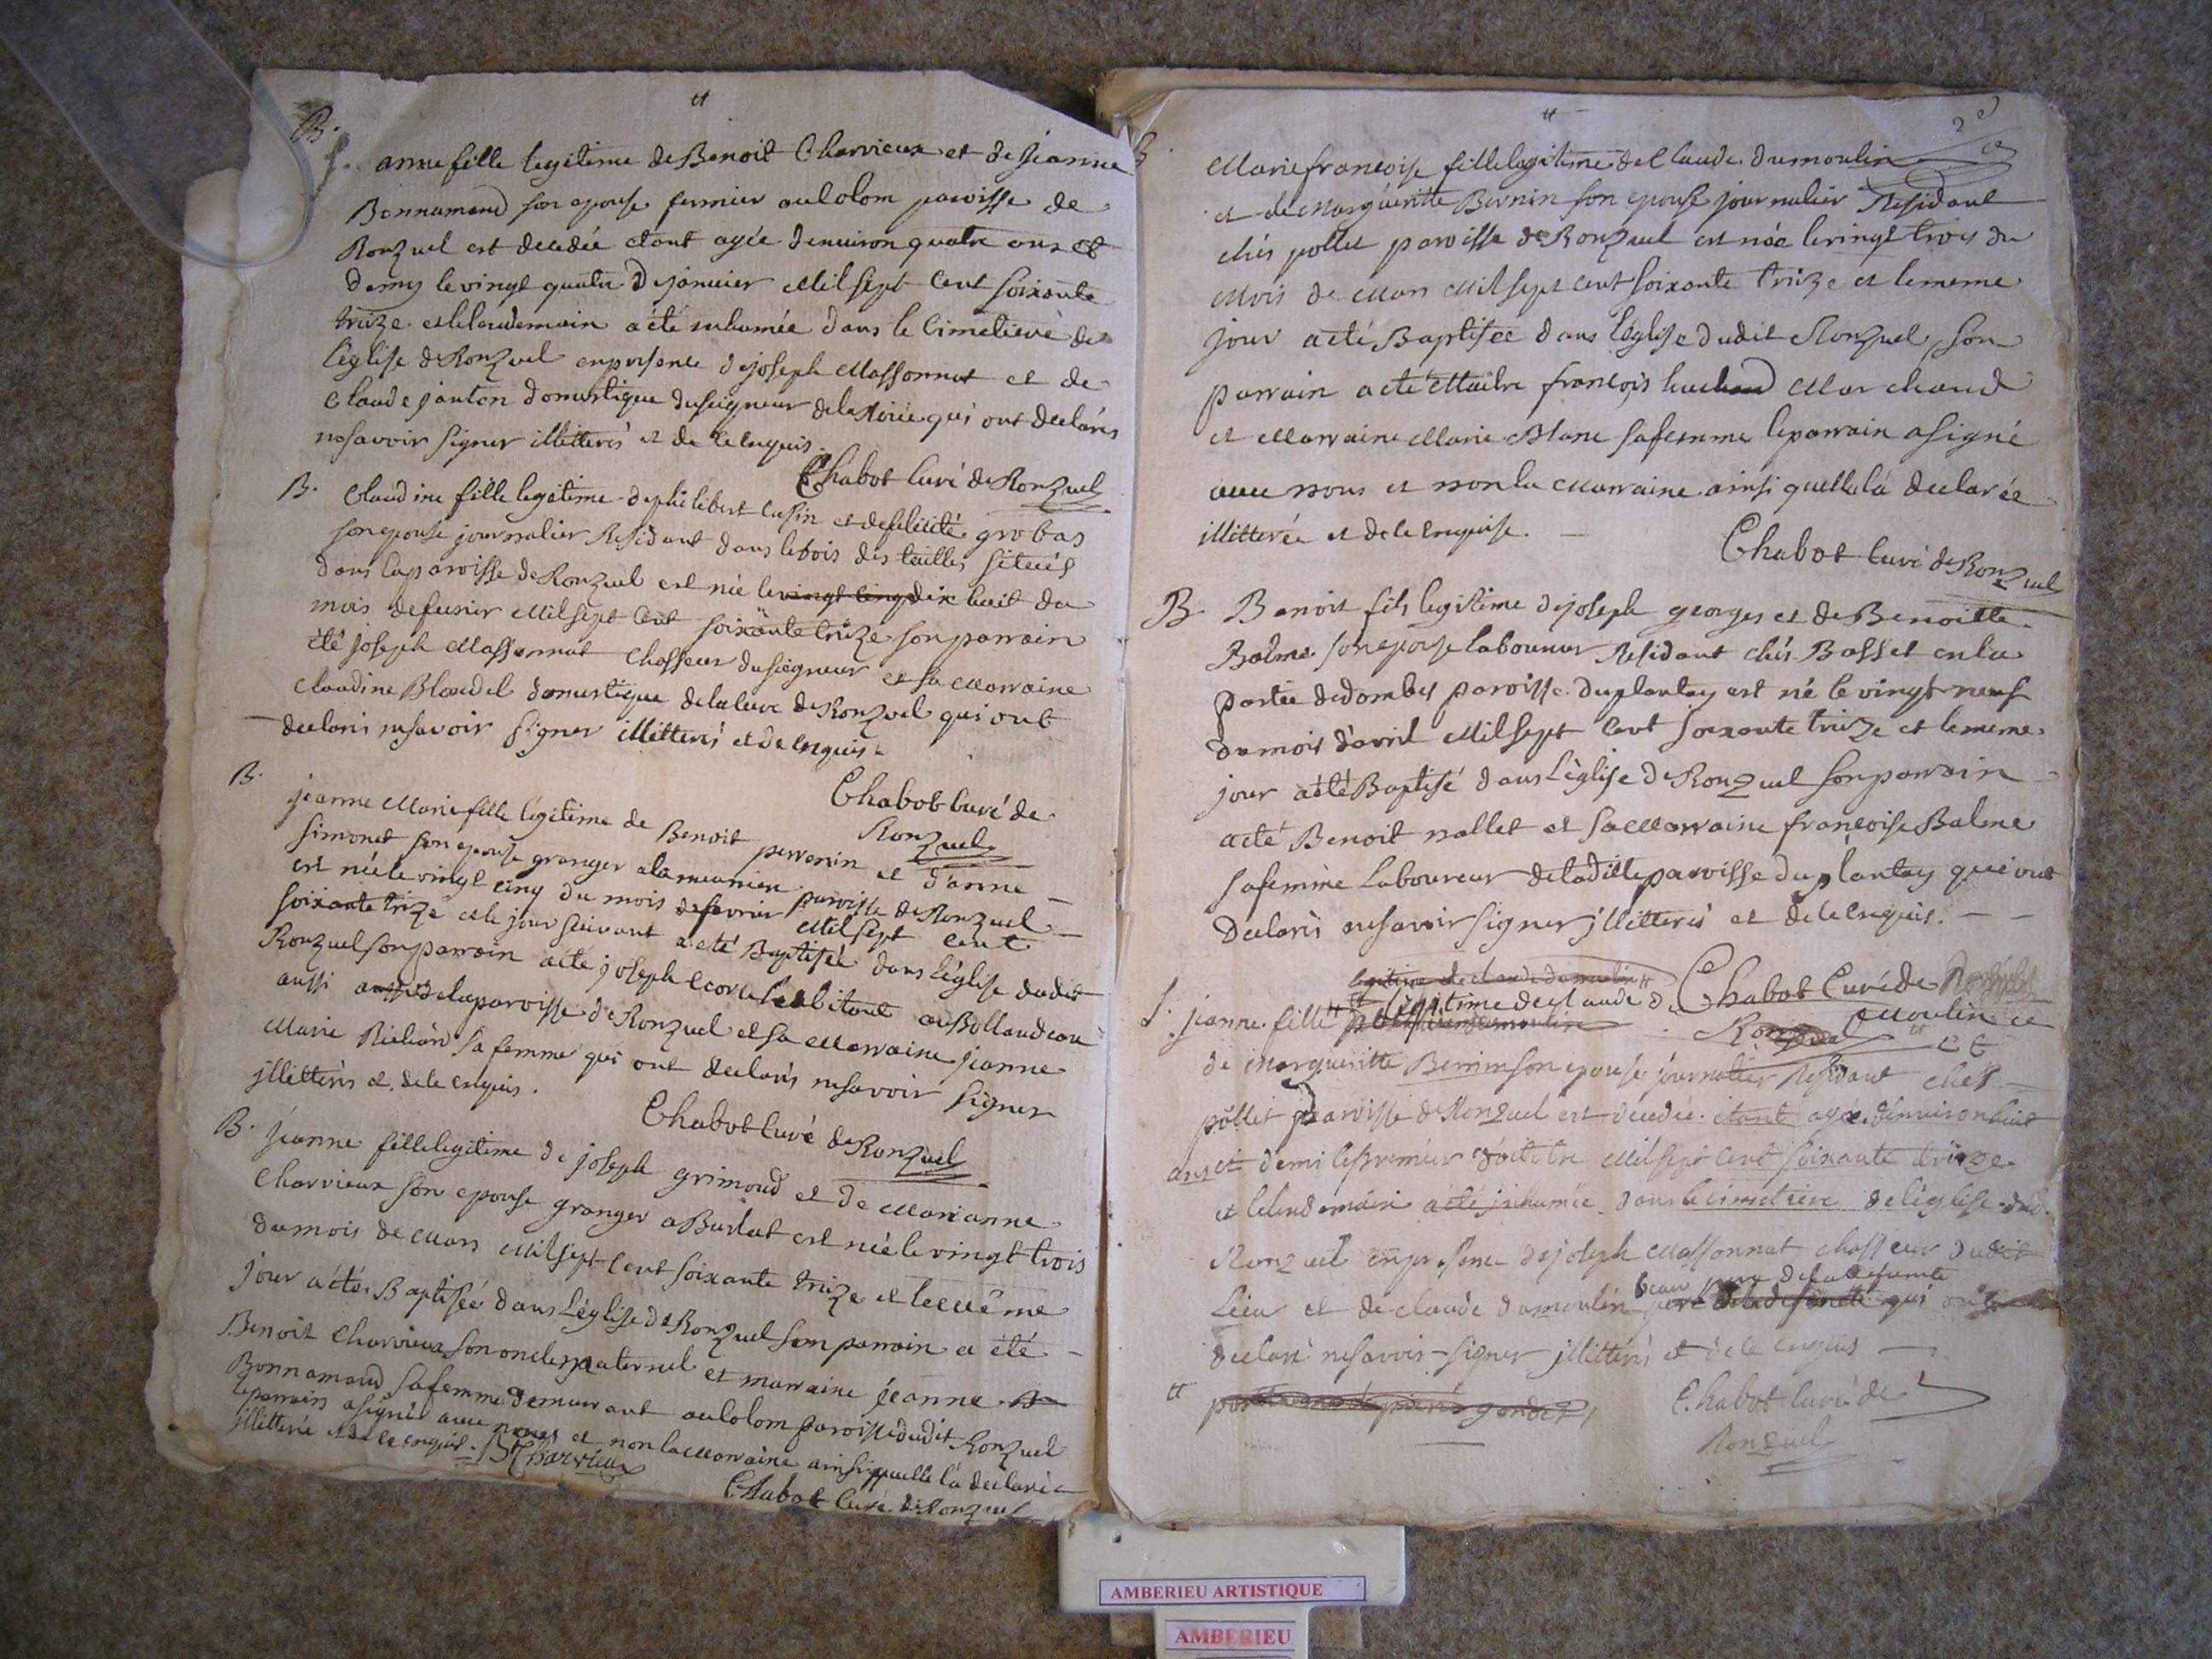 B.
S. anne fille legitime de Benoit Charvieux et de jeanne
Bonnamand son epouse fermier au lolom paroisse de
Ronzuel est decedée etant agée denviron quatre ans et
demy le vingt quatre de janvier Mil sept cent soixante
treize et le landemain a été inhumée dans le Cimetiere de
l'église de Ronzuel en presence de joseph Massonnat et de
Claude janton domestique du seigneur de la qui ont declarés
ne savoir signer illitterés et de ce enquis.
Chabot Curé de Ronzuel
B. Claudine fille legitime de philibert cusin et de felicité grobas
son epouse journalier Residant dans le bois des tailles situés
dans la paroisse de Ronzuel est née le vingt cinq dix huit du
mois de fevrier Mil sept cent soixante treize son parrain
été joseph Massonnat Chasseur du seigneur et sa Marraine
Claudine Blondel domestique de la cure de Ronzuel qui ont
declaris ne savoir signer illitterés et de ce enquis.
Chabot Curé de
Ronzuel
B. jeanne Marie fille légitime de Benoit perrenin et d'anne
Simonet son epouse granger a la meunien paroisse de Ronzuel
est née le vingt cinq du mois de fevrier Mil sept cent
soixante treize et le jour suivant a eté Baptisée dans l'église dudit
Ronzuel son parrain a été joseph habitant au Bollandeau
aussi de la paroisse de Ronzuel et sa Marraine jeanne
Marie sa femme qui ont declarés ne savoir signer
illitterés et de ce enquis.
Chabot Curé de Ronzuel
B. jeanne fille legitime de joseph grimoud et de Marianne
Charvieux son epouse granger a Burlat est née le vingt trois
du mois de Mars Mil sept cent soixante treize et le même
jour a été Baptisée dans l'église de Ronzuel son parrain a été
Benoit Charvieux son oncle maternel et marraine jeanne
Bonnamand sa femme demeurant au lolom paroisse dudit Ronzuel
le parrain a signé avec nous et non la Marraine ainsi quelle l'a declaré
illitterée et de ce enquis. B Charvieux
Chabot Curé de Ronzuel
2e
B. Marie françoise fille legitime de Claude dumoulin
et de Margueritte Bernin son epouse journalier Residant
chés pollet paroisse de Ronzuel est née le vingt trois du
Mois de Mars Mil sept cent soixante treize et le meme
jour a eté Baptisée dans l'église dudit Ronzuel, son
parrain a eté Maitre françois Marchand
et Marraine Marie Blanc sa femme le parrain a signé
avec nous et non la Marraine ainsi quelle l'a declarée
illitterée et de ce enquise.
Chabot Curé de Ronzuel
B. Benoit fils legitime de joseph georges et de Benoitte
Balme son epouse laboureur Residant chés Basset en la
partie de dombes paroisse du plantay est né le vingt neuf
du mois d'avril Mil sept cent soixante treize et le meme
jour a été Baptisé dans l'église de Ronzuel son parrain
a été Benoit nallet et sa Marraine françoise Balme
sa femme Laboureur de la ditte paroisse du plantay qui ont
declarés ne savoir signer illitterés et de ce enquis.
Chabot Curé de
Ronzuel
legitime de claude dumoulin
S. jeanne fille legitime de claude du Moulin et
de Margueritte Bernin son epouse journalier Residant chés
pollet paroisse de Ronzuel est decedée etant agée denviron huit
ans et demi le premier d'octobre Mil sept cent soixante treize
et le lendemain a été inhumée dans le cimetiere de l'église dud.
Ronzuel en presence de joseph Massonnat chasseur dudit
Lieu et de claude dumoulin pere de la defunte qui ont
declaré ne savoir signer illitterés et de ce enquis
Chabot Curé de
Ronzuel
AMBERIEU ARTISTIQUE
AMBERIEU